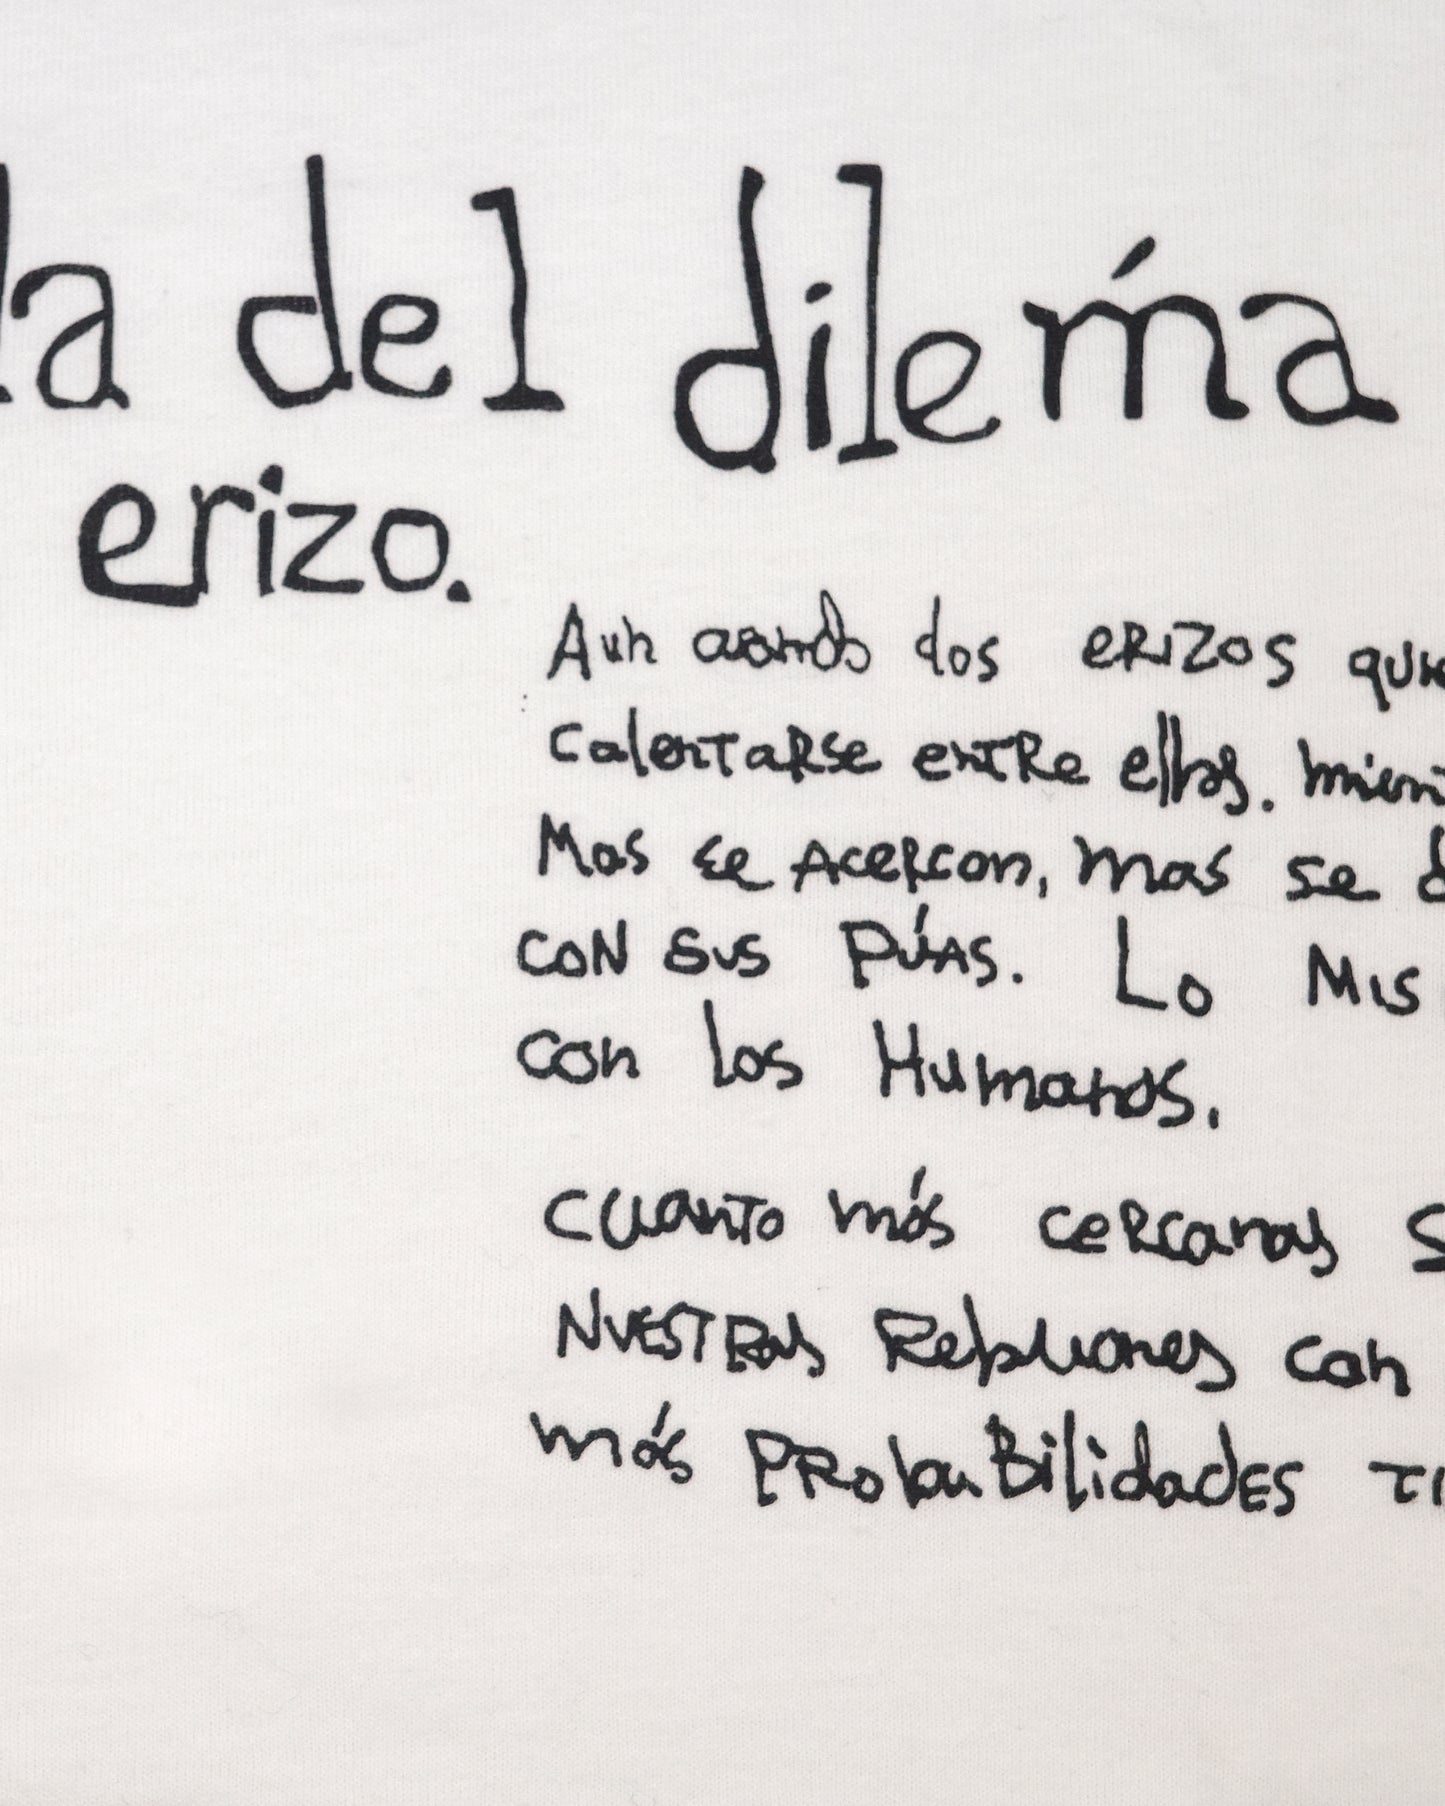 la del dileḿa
erizo.
Aun cuando dos eRIZOS quie
CalentaRse entRe ellos. mient
Mas se AceRcan, mas se d
CON SUS PÚAS. Lo MIS
con los Humanos.
CUanTo más ceRcanas S
NUESTRas Relaciones con
más PRobaBilidadES TI